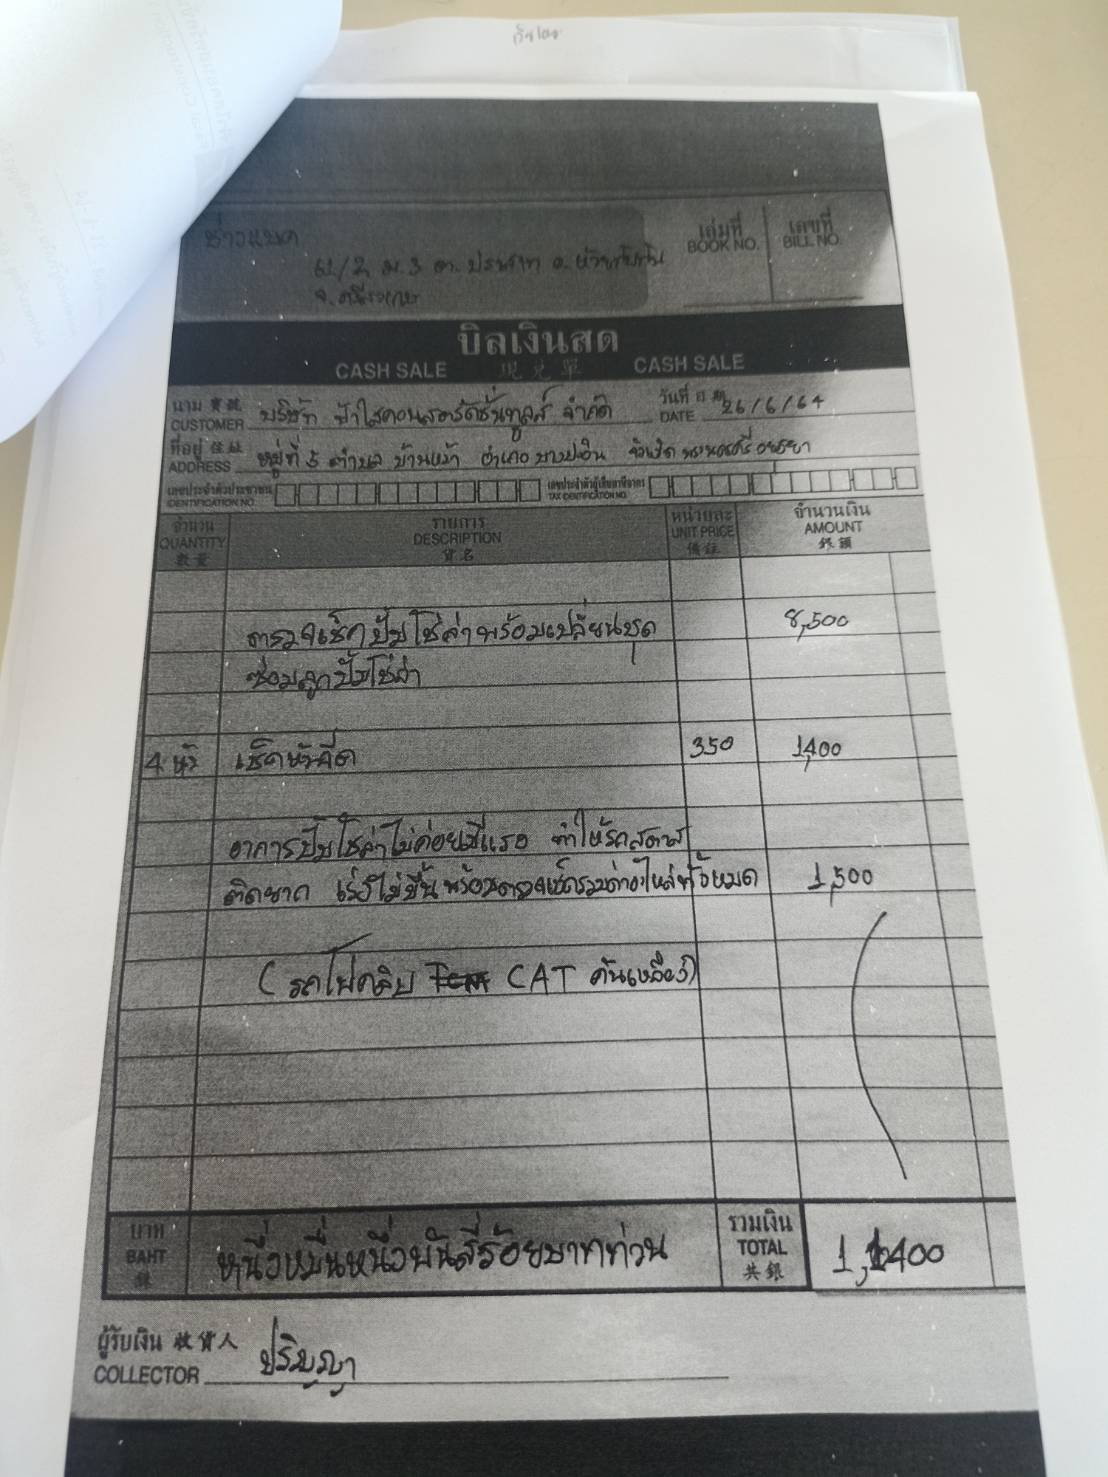 ช่างแมค
61/2 ม.3 ต. ปราสาท อ. ห้วยทับทัน
จ.ศรีสะเกษ
เล่มที่
BOOK NO.
เลขที่
BILL NO.
บิลเงินสด
CASH SALE 現 兌 單 CASH SALE
นาม 寶號
CUSTOMER บริษัท ฟ้าใสคอนสตรัคชั่นทูลส์ จำกัด
วันที่ 日期
DATE 26/6/64
ที่อยู่ 住址
ADDRESS หมู่ที่ 5 ตำบล บ้านหว้า อำเภอ บางปะอิน จังหวัด พระนครศรีอยุธยา
เลขประจำตัวประชาชน
IDENTIFICATION NO.
เลขประจำตัวผู้เสียภาษีอากร
TAX IDENTIFICATION NO.
จำนวน
QUANTITY
數量
รายการ
DESCRIPTION
貨名
หน่วยละ
UNIT PRICE
價銀
จำนวนเงิน
AMOUNT
銀額
ตรวจเช็คปั้มโซล่าพร้อมเปลี่ยนชุด 8,500
ซ่อมลูกปั้มโซล่า
4 หัว เช็คหัวฉีด 350 1,400
อาการปั้มโซล่าไม่ค่อยมีแรง ทำให้รถสตาท
ติดยาก เร่งไม่ขึ้น พร้อมตรวจเช็ครวมค่าอะไหล่ทั้งหมด 1,500
(รถโฟคลิบ CAT คันเหลือง)
บาท
BAHT
銀
หนึ่งหมื่นหนึ่งพันสี่ร้อยบาทถ้วน
รวมเงิน
TOTAL
共銀
11,400
ผู้รับเงิน 收貨人
COLLECTOR ปริญญา